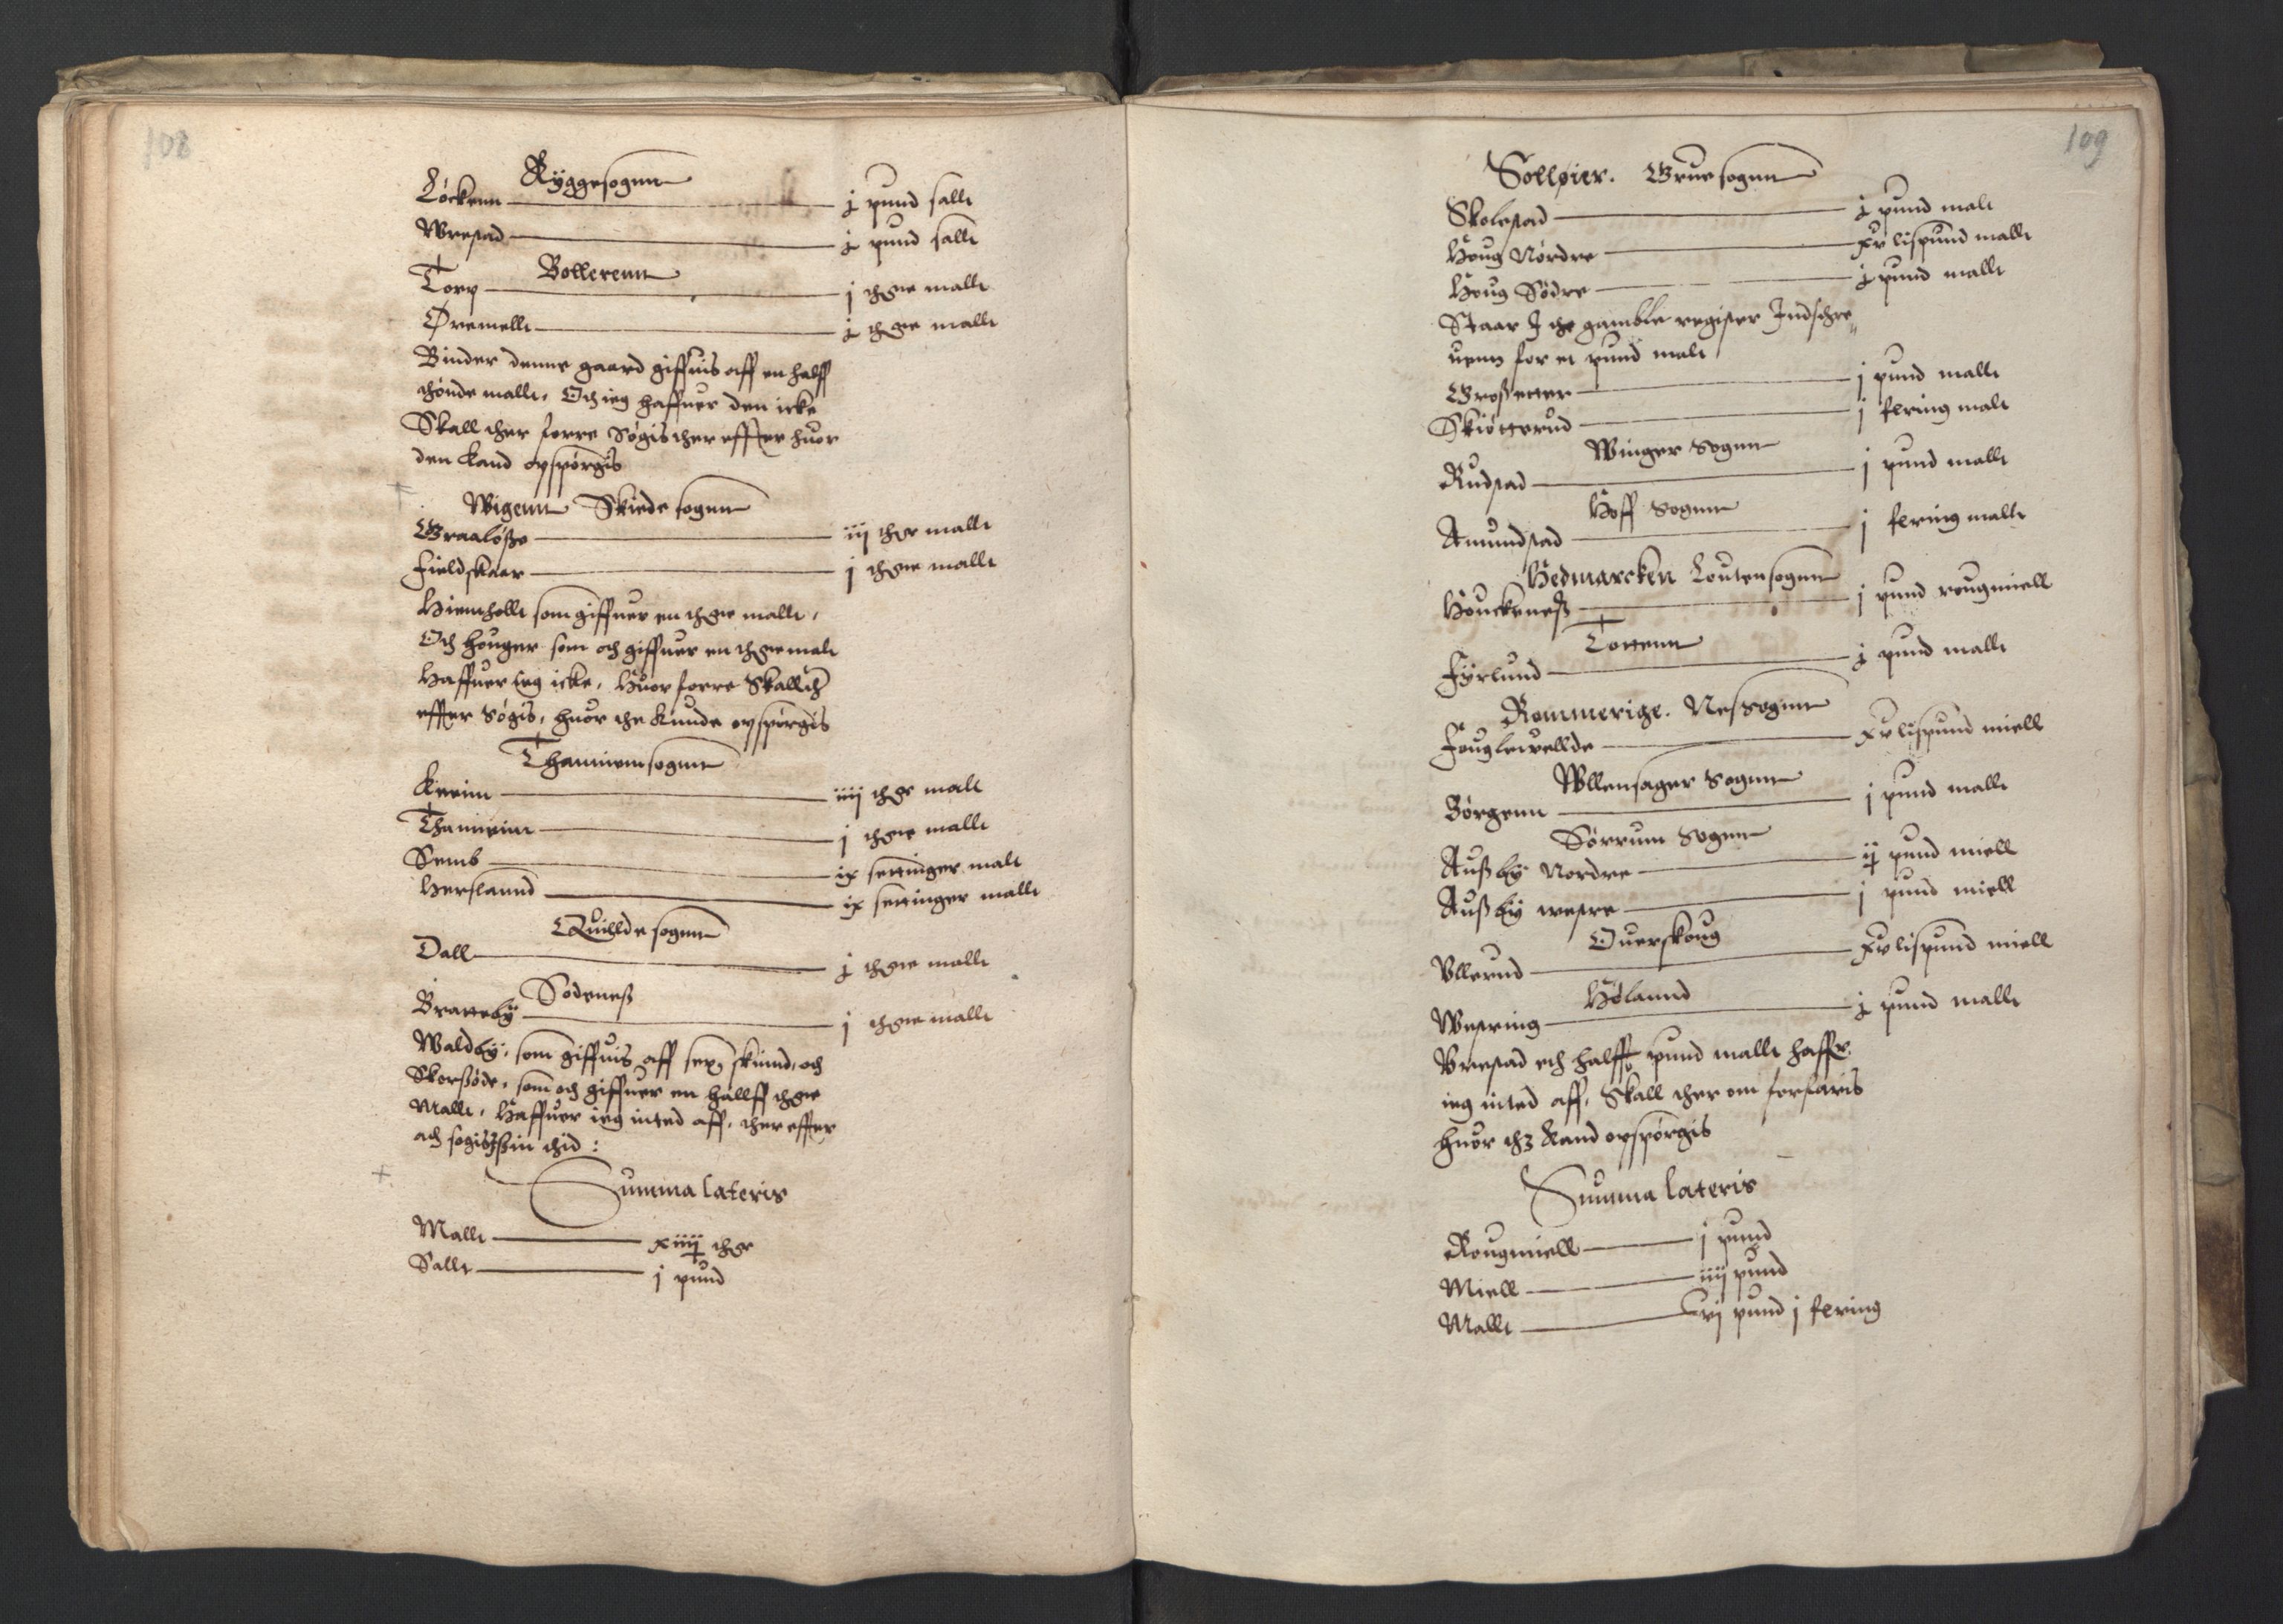 108
Ryggesognn
Løckenn j pund sallt
Wrestad j pund sallt
Bollerenn
Torp j thøne mallt
Øremelle j thøne mallt
Binder denne gaard giffuis aff en halff
thønde mallt, Och ieg haffuer den icke
Skall ther forre Søgis ther effter huor
den kand opspørgis
Wigenn Skiede sognn
Graaløsze iij thøe mallt
Fieldskaar j thøne mallt
Hiemhollt som giffuer en thøne mallt,
Och houger som och giffuer en thøne malt
Haffuer ieg icke, Huor forre Skall th
effter Søgis, huor the kunde opspørgis
Thanniemsognn
Kreim iiij thøe malt
Thanneim j thøne mallt
Semb ix settinger malt
Herslannd ix settinger mallt
Quillde sognn
Dall j thøne mallt
Sødeness
Bratteby j thøne mallt
Waldby, som giffuis aff sex skinnd, och
Skorszøde, som och giffuer en hallff thøne
Mallt, Haffuer ieg inted aff, ther effter
ath søgis i sin thid :
Summa lateris
Mallt xiiij thøe
Sallt j pund
109
Solløier. Grue sognn
Skolestad j pund malt
Houg Nørdre xv lispund mallt
Houg Sødre j pund mallt
Staar J the gamble register Indschre
uenn for et pund malt
Groszetter j pund mallt
Skiøtterud j fering malt
Winger Sognn
Rudstad j pund mallt
Hoff Sognn
Amundstad j fering mallt
Hedmarcken Loutensognn
Houckeness j pund rougmiell
Tottenn
Fyrlund j pund mallt
Rommerige. Nessognn
Fougleuellde xv lispund miell
Wllensager Sognn
Børgenn j pund mallt
Sørrum Sognn
Auszby Nordre ij pund miell
Auszby westre j pund miell
Ouerskoug
Vllerud xv lispund miell
Hølannd
Westring j pund mallt
Vrestad eth halfft pund mallt haffr
ieg inted aff, Skall ther om forfaris
huor thz kand opspørgis
Summa lateris
Rougmiell j pund
Miell iiij pund
Mallt vj pund j fering